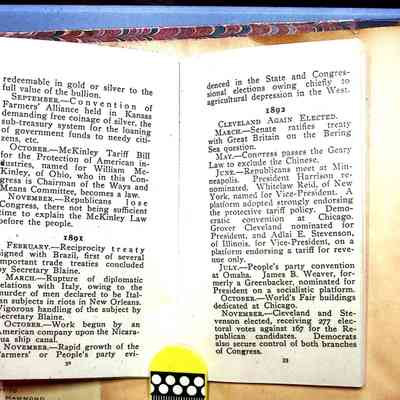 redeemable in gold or silver to the
full value of the bullion.
SEPTEMBER.—Convention of
Farmers' Alliance held in Kansas
demanding free coinage of silver, the
sub-treasury system for the loaning
of government funds to needy citi-
zens, etc.
OCTOBER.—McKinley Tariff Bill
for the Protection of American in-
dustries, named for William Mc-
Kinley, of Ohio, who in this Con-
gress is Chairman of the Ways and
Means Committee, becomes a law.
NOVEMBER.—Republicans lose
Congress, there not being sufficient
time to explain the McKinley Law
before the people.
1891
FEBRUARY.—Reciprocity treaty
signed with Brazil, first of several
important trade treaties concluded
by Secretary Blaine.
MARCH.—Rupture of diplomatic
relations with Italy, owing to the
murder of men declared to be Ital-
ian subjects in riots in New Orleans.
Vigorous handling of the subject by
Secretary Blaine.
OCTOBER.—Work begun by an
American company upon the Nicara-
gua ship canal.
NOVEMBER.—Rapid growth of the
Farmers' or People's party evi-
denced in the State and Congres-
sional elections owing chiefly to
agricultural depression in the West.
1892
CLEVELAND AGAIN ELECTED.
MARCH.—Senate ratifies treaty
with Great Britain on the Bering
Sea question.
MAY.—Congress passes the Geary
Law to exclude the Chinese.
JUNE.—Republicans meet at Min-
neapolis. President Harrison re-
nominated. Whitelaw Reid, of New
York, named for Vice-President. A
platform adopted strongly endorsing
the protective tariff policy. Demo-
cratic convention at Chicago.
Grover Cleveland nominated for
President, and Adlai E. Stevenson,
of Illinois, for Vice-President, on a
platform endorsing a tariff for reve-
nue only.
JULY.—People's party convention
at Omaha. James B. Weaver, for-
merly a Greenbacker, nominated for
President on a socialistic platform.
OCTOBER.—World's Fair buildings
dedicated at Chicago.
NOVEMBER.—Cleveland and Ste-
venson elected, receiving 277 elec-
toral votes against 167 for the Re-
publican candidates. Democrats
also secure control of both branches
of Congress.
HAMMOND